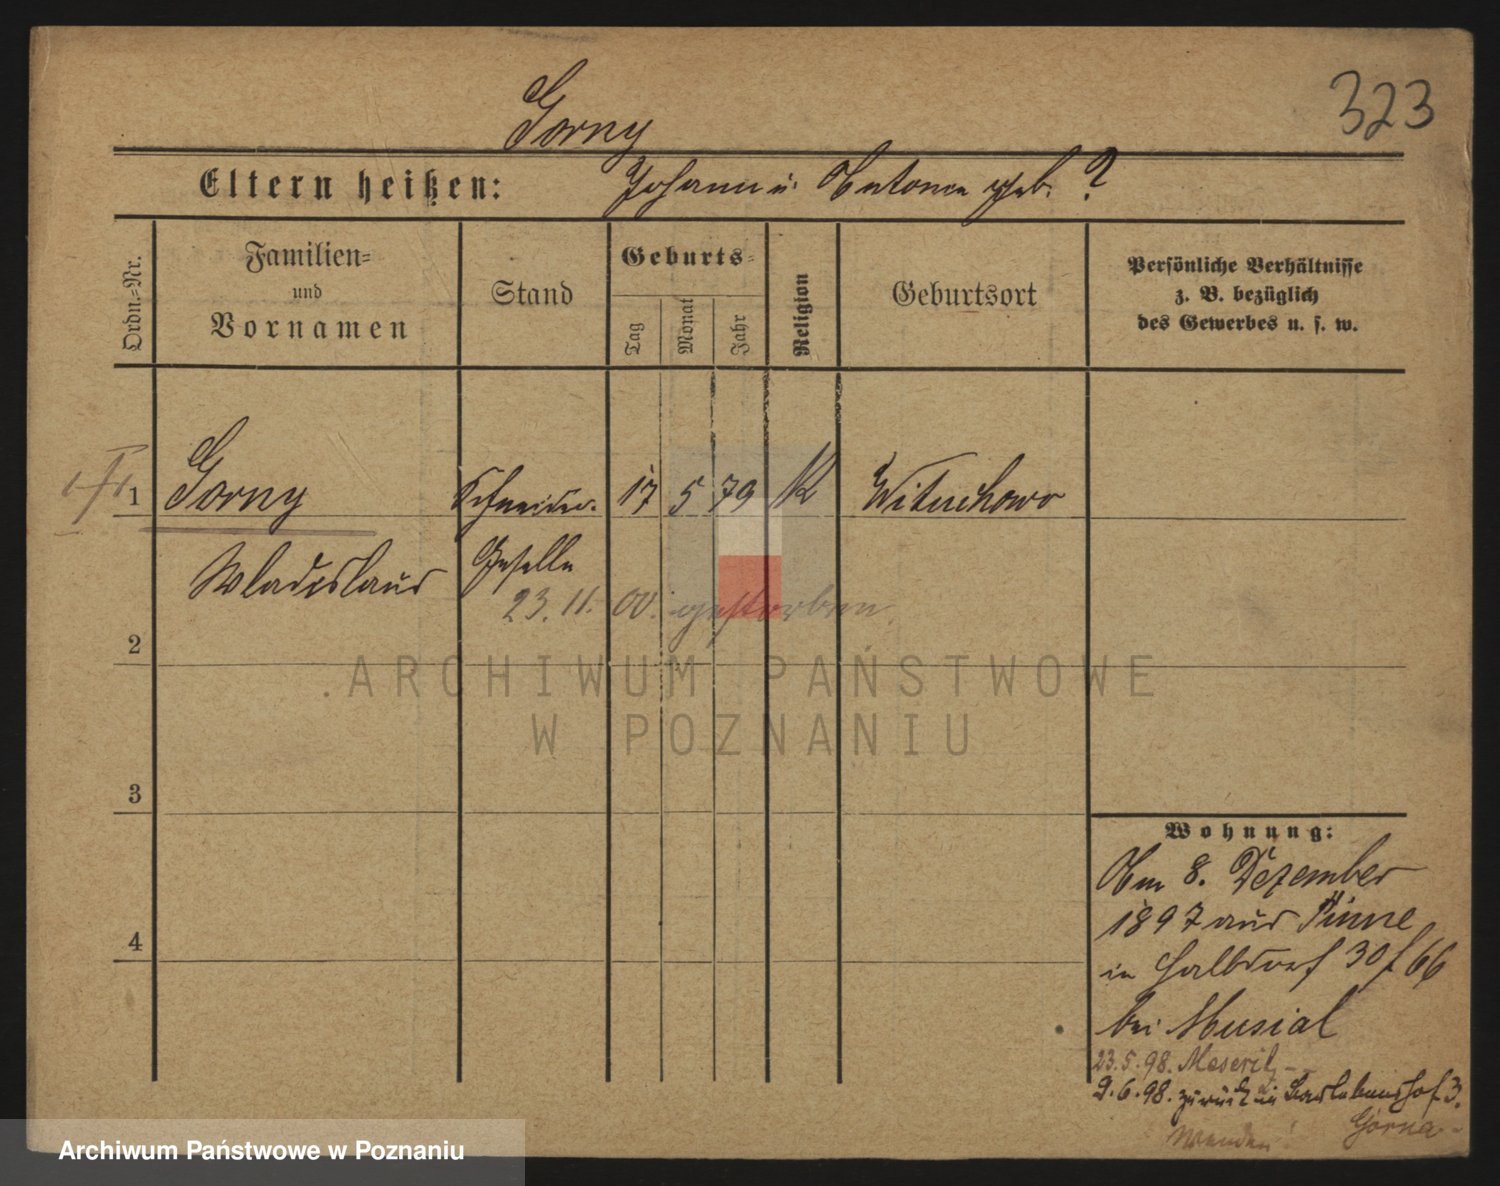 323
Gorny
Eltern heißen: Johann u. Antonie geb. ?
Ordn.=Nr.
Familien=
und
Vornamen
Stand
Geburts=
Tag
Monat
Jahr
Religion
Geburtsort
Persönliche Verhältnisse
z. B. bezüglich
des Gewerbes u. s. w.
1 Gorny Schneider- 17 5 79 K Wituchowo
Wladislaus Geselle
23. 11. 00. gestorben.
2
ARCHIWUM PAŃSTWOWE
W POZNANIU
3
Wohnung:
Am 8. Dezember
1897 aus Pinne
4
in Halbdorf 30 / 66
bei Musial
23.5.98. Meseritz
9.6.98. zurück in 3.
Górna
Wenden!
Archiwum Państwowe w Poznaniu